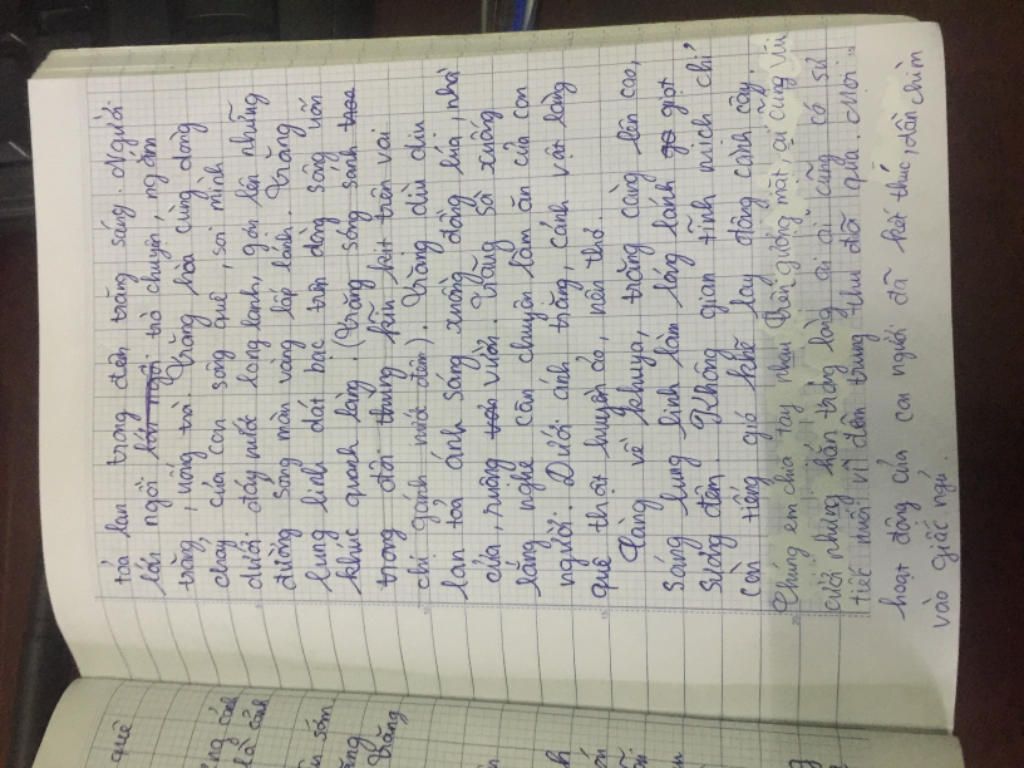 toả lan trong đêm trăng sáng. Người
lớn ngồi trò chuyện, ngắm
trăng, uống trà. Trăng hòa cùng dòng
chảy của con sông quê, soi mình
dưới đáy nước long lanh, gợn lên những
đường sóng màn vàng lấp lánh. Trăng
lung linh dát bạc trên dòng sông uốn
khúc quanh làng. (Trăng sóng sánh
trong đôi thùng kĩu kịt trên vai
chị gánh nước đêm). Trăng dìu dịu
lan toả ánh sáng xuống đồng lúa, nhà
cửa, ruộng vườn. Trăng sà xuống
lắng nghe câu chuyện làm ăn của con
người. Dưới ánh trăng, cảnh vật làng
quê thật huyền ảo, nên thơ.
Càng về khuya, trăng càng lên cao,
sáng lung linh làm lóng lánh giọt
sương đêm. Không gian tĩnh mịch chỉ
còn tiếng gió khẽ lay động cành cây.
Chúng em chia tay nhau trên gương mặt, ai cũng vui
cười nhưng hẳn trong lòng ai ai cũng có sự
tiếc nuối vì đêm trung thu đã qua. Mọi
hoạt động của con người đã kết thúc, dần chìm
vào giấc ngủ.
quê
sớm
Trăng